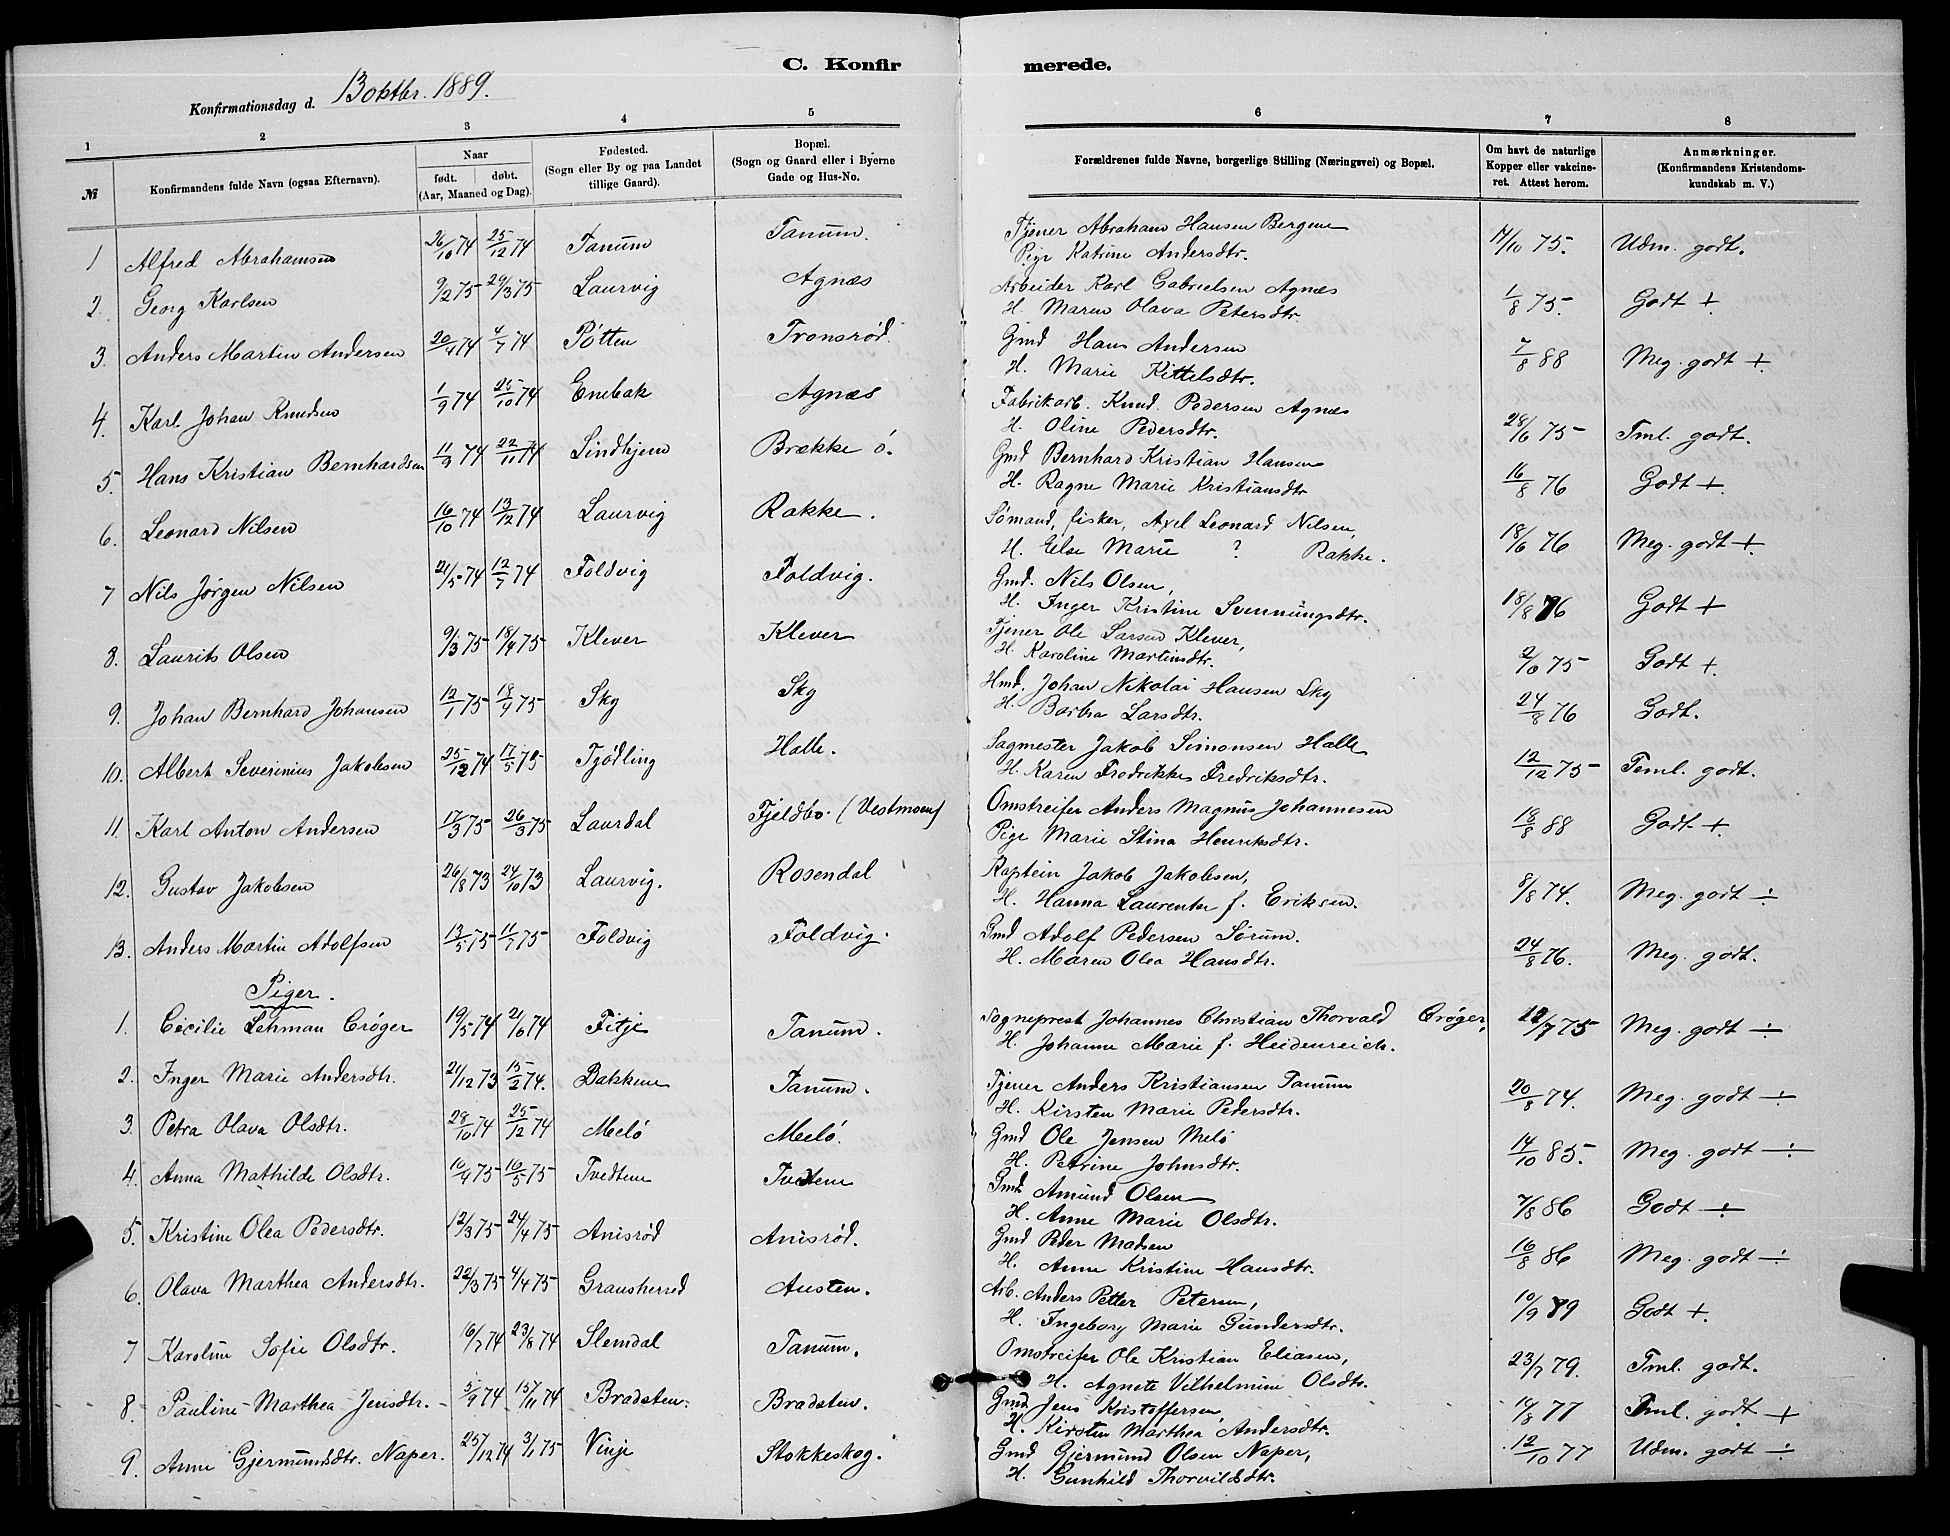 C. Konfirmerede.
Konfirmationsdag d. 13 oktbr. 1889.
1 2 3 4 5 6 7 8
№ Konfirmandens fulde Navn (ogsaa Efternavn). Naar født. døbt. (Aar, Maaned og Dag). Fødested. (Sogn eller By og paa Landet tillige Gaard). Bopæl. (Sogn og Gaard eller i Byerne Gade og Hus-No. Forældrenes fulde Navne, borgerlige Stilling (Næringsvei) og Bopæl. Om havt de naturlige Kopper eller vakcineret. Attest herom. Anmærkninger. (Konfirmandens Kristendomskundskab m. V.)
1 Alfred Abrahamsen 26/10 74 25/12 74 Tanum Tanum. Tjener Abraham Hansen Bergene 17/10 75. Udm. godt.
Pige Katrine Andersdtr.
2. Georg Karlsen 9/2 75 29/3 75 Laurvig Agnæs Arbeider Karl Gabrielsen Agnæs 1/8 75. Godt +
H. Maren Olava Petersdtr.
3. Anders Martin Andersen 20/4 74 4/7 74 Pötten Tronsrød Gmd Hans Andersen 7/8 88 Meg. godt +
H. Marie Kittelsdtr.
4. Karl Johan Knudsen 1/9 74 25/10 74 Enebak Agnæs Fabrikarb. Knud Pedersen Agnæs 28/6 75 Tml. godt.
H. Oline Pedersdtr.
5. Hans Kristian Bernhardsen 11/9 74 22/11 74 Lindhjem Brække ö. Gmd Bernhard Kristian Hansen 16/8 76 Godt +
H. Ragne Marie Kristiansdtr
6. Leonard Nilsen 16/10 74 13/12 74 Laurvig Rakke. Sømand, fisker, Axel Leonard Nilsen, 18/6 76 Meg. godt +
H. Else Marie ? Rakke.
7 Nils Jørgen Nilsen 21/5 74 12/7 74 Foldvig Foldvig. Gmd. Nils Olsen, 18/8 76 Godt +
H. Inger Kristine Svennungsdtr.
8. Laurits Olsen 9/3 75 18/4 75 Klever Klever Tjener Ole Larsen Klever, 2/10 75 Godt +
H. Karoline Martinsdtr.
9. Johan Bernhard Johansen 12/1 75 18/4 75 Sky Sky Hmd. Johan Nikolai Hansen Sky 24/8 76 Godt.
H. Barbra Larsdtr.
10. Albert Severinius Jakobsen 25/12 74 17/5 75 Tjødling Halle. Sagmester Jakob Simonsen Halle 12/12 75 Teml. godt.
H. Karen Fredrikke Fredriksdtr.
11. Karl Anton Andersen 17/3 75 26/3 75 Laurdal Fjeldbo (Vestmoen) Omstreifer Anders Magnus Johannesen 18/8 88 Godt +
Pige Marie Stina Henriksdtr.
12. Gustav Jakobsen 26/8 73 24/10 73 Laurvig. Rosendal Kaptein Jakob Jakobsen, 8/8 74. Meg. godt ÷
H. Hanna Laurentse f. Eriksen.
13. Anders Martin Adolfsen 13/5 75 11/7 75 Foldvig Foldvig. Gmd Adolf Pedersen Sørum. 24/8 76. Meg. godt.
H. Maren Olea Hansdtr.
Piger.
1. Cecilie Lehman Crøger 19/5 74 21/6 74 Fitje Tanum. Sogneprest Johannes Christian Thorvald Crøger, 12/7 75 Meg. godt ÷
H. Johanne Marie f. Heidenreich.
2. Inger Marie Andersdtr. 21/12 73 15/2 74. Bakkene Tanum. Tjener Anders Kristiansen Tanum 20/8 74. Meg. godt ÷
H. Kirsten Marie Pedersdtr.
3. Petra Olava Olsdtr. 28/10 74 25/12 74 Melö Melö. Gmd Ole Jensen Melö 14/10 85. Meg. godt ÷
H. Petrine Johnsdtr.
4. Anna Mathilde Olsdtr. 10/4 75 16/5 75 Tvedtene Tvedtene Gmd Amund Olsen 7/8 86 Godt ÷
H. Anne Marie Olsdtr.
5. Kristine Olea Pedersdtr. 12/3 75 24/4 75 Anisrød Anisrød. Gmd Peder Madsen 16/8 86 Meg. godt ÷
H. Anne Kristine Hansdtr.
6. Olava Marthea Andersdtr. 22/3 75 4/4 75 Gransherred Austen. Arb. Anders Petter Petersen, 10/9 89 Godt +
H. Ingeborg Marie Gundersdtr.
7 Karoline Sofie Olsdtr. 16/7 74 23/8 74 Slemdal Tanum. Omstreifer Ole Kristian Eliasen, 23/7 79. Tml. godt.
H. Agnete Vilhelmine Olsdtr.
8. Pauline Marthea Jensdtr. 5/9 74 15/11 74 Bradsten. Bradsten. Gmd Jens Kristoffersen, 14/8 77 Tml. godt +
H. Kirsten Marthea Andersdtr.
9. Anne Gjermundsdtr. Naper. 25/12 74 3/1 75 Vinje Stokkeskog. Gmd Gjermund Olsen Naper, 12/10 77 Udm. godt ÷
H. Gunhild Thorvildsdtr.